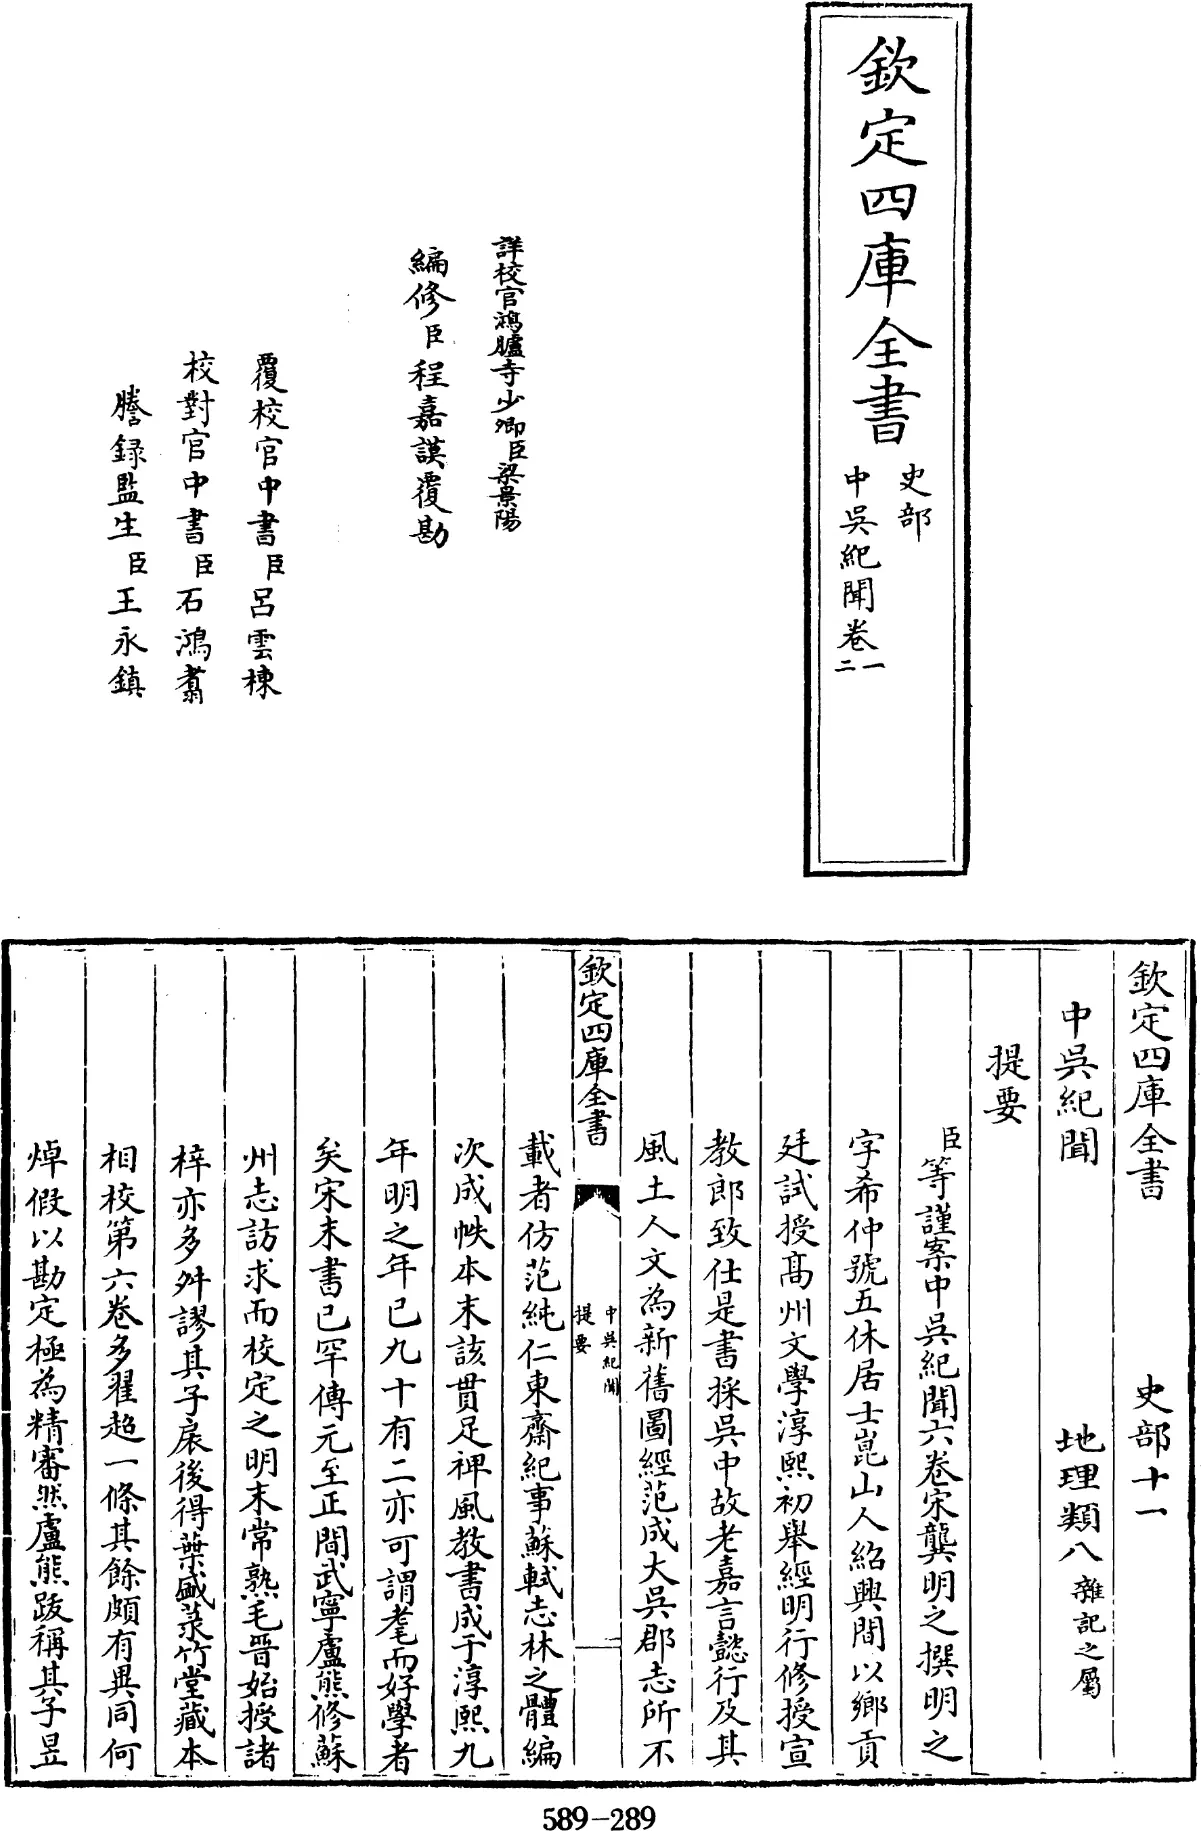 欽定四庫全書
史部
中吳紀聞卷一二
詳校官鴻臚寺少卿臣梁景陽
編修臣程嘉謨覆勘
覆校官中書臣呂雲棟
校對官中書臣石鴻翥
謄録監生臣王永鎮
欽定四庫全書 史部十一
中吳紀聞 地理類八雜記之屬
提要
臣等謹案中吳紀聞六卷宋龔明之撰明之
字希仲號五休居士崑山人紹興間以鄉貢
廷試授高州文學淳熙初舉經明行修授宣
教郎致仕是書採吳中故老嘉言懿行及其
風土人文為新舊圖經范成大吳郡志所不
欽定四庫全書
中吳紀聞
提要
一
載者仿范純仁東齋紀事蘇軾志林之體編
次成帙本末該貫足裨風教書成于淳熙九
年明之年已九十有二亦可謂耄而好學者
矣宋末書已罕傳元至正間武寧盧熊修蘇
州志訪求而校定之明末常熟毛晉始授諸
梓亦多舛謬其子扆後得葉盛菉竹堂藏本
相校第六卷多翟超一條其餘頗有異同何
焯假以勘定極為精審然盧熊跋稱其子昱
589-289